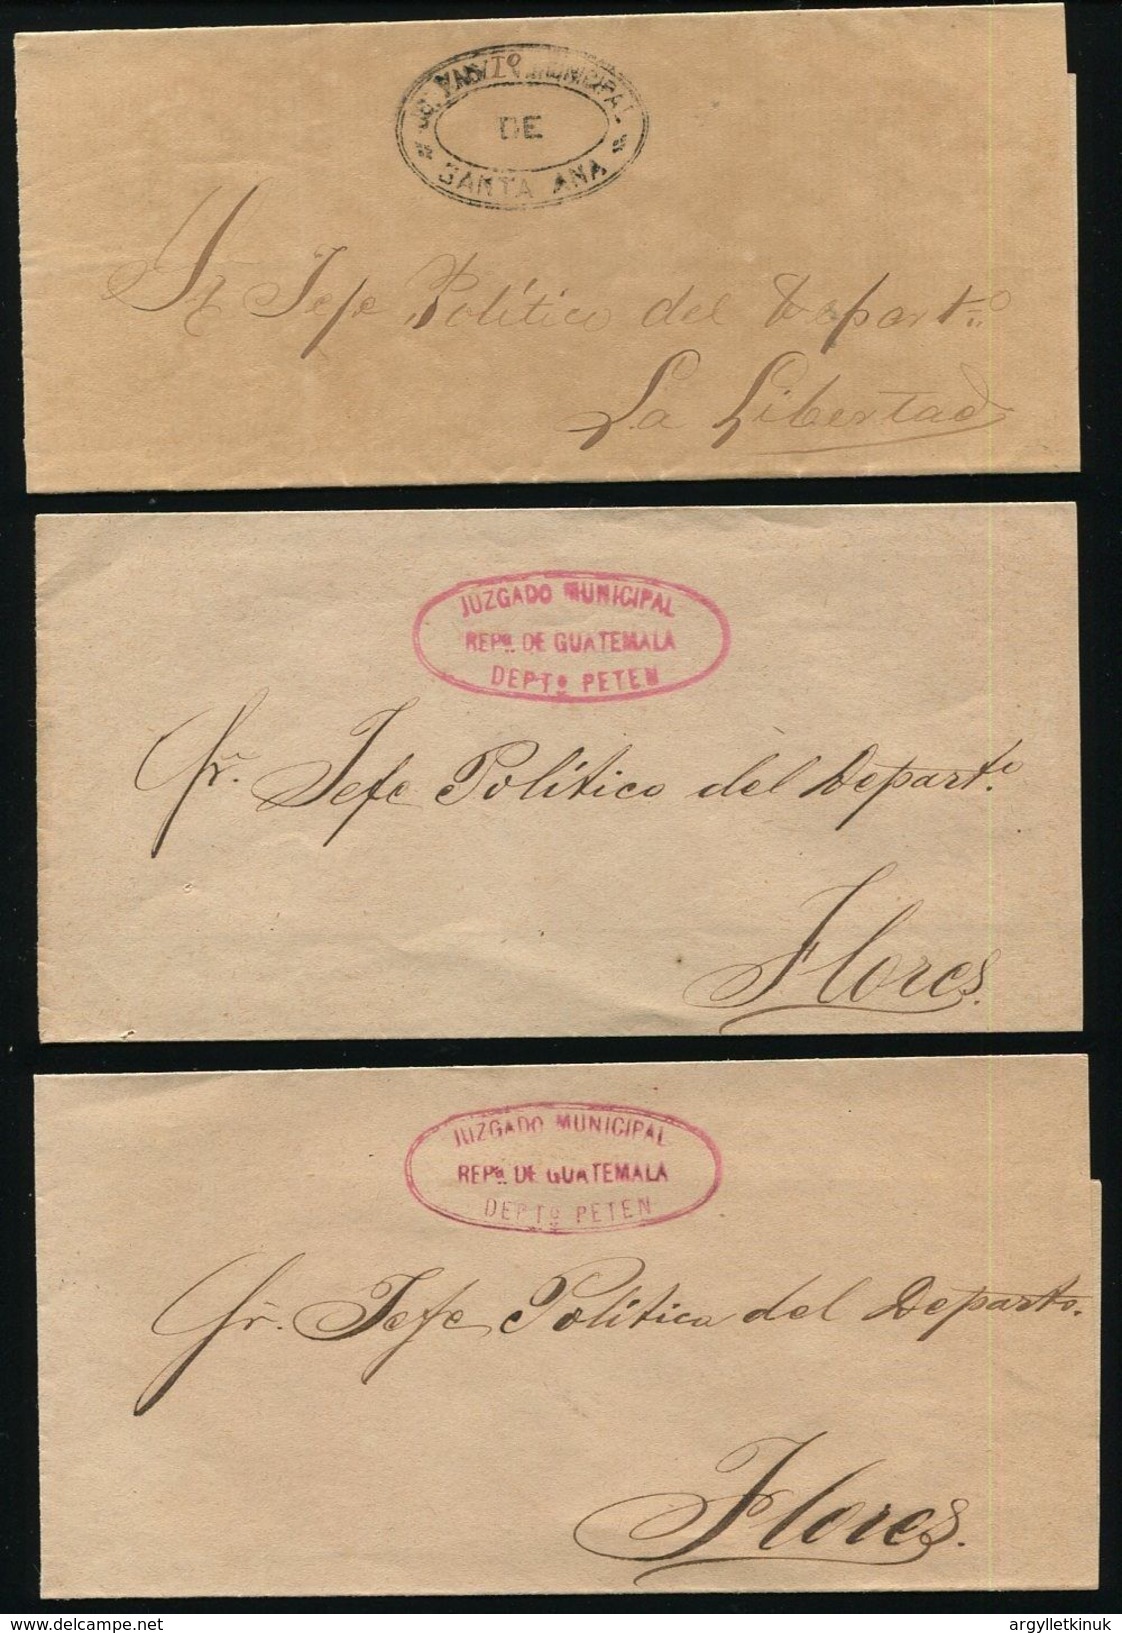 MUNICIPAL
DE
SANTA ANA
Sr Jefe Político del Departo
La Libertad
JUZGADO MUNICIPAL
REPa. DE GUATEMALA
DEPTo PETEN
Sr. Jefe Político del Departo.
Flores.
JUZGADO MUNICIPAL
REPa. DE GUATEMALA
DEPTo PETEN
Sr. Jefe Político del Departo.
Flores.
delcampe.net
argylletkinuk